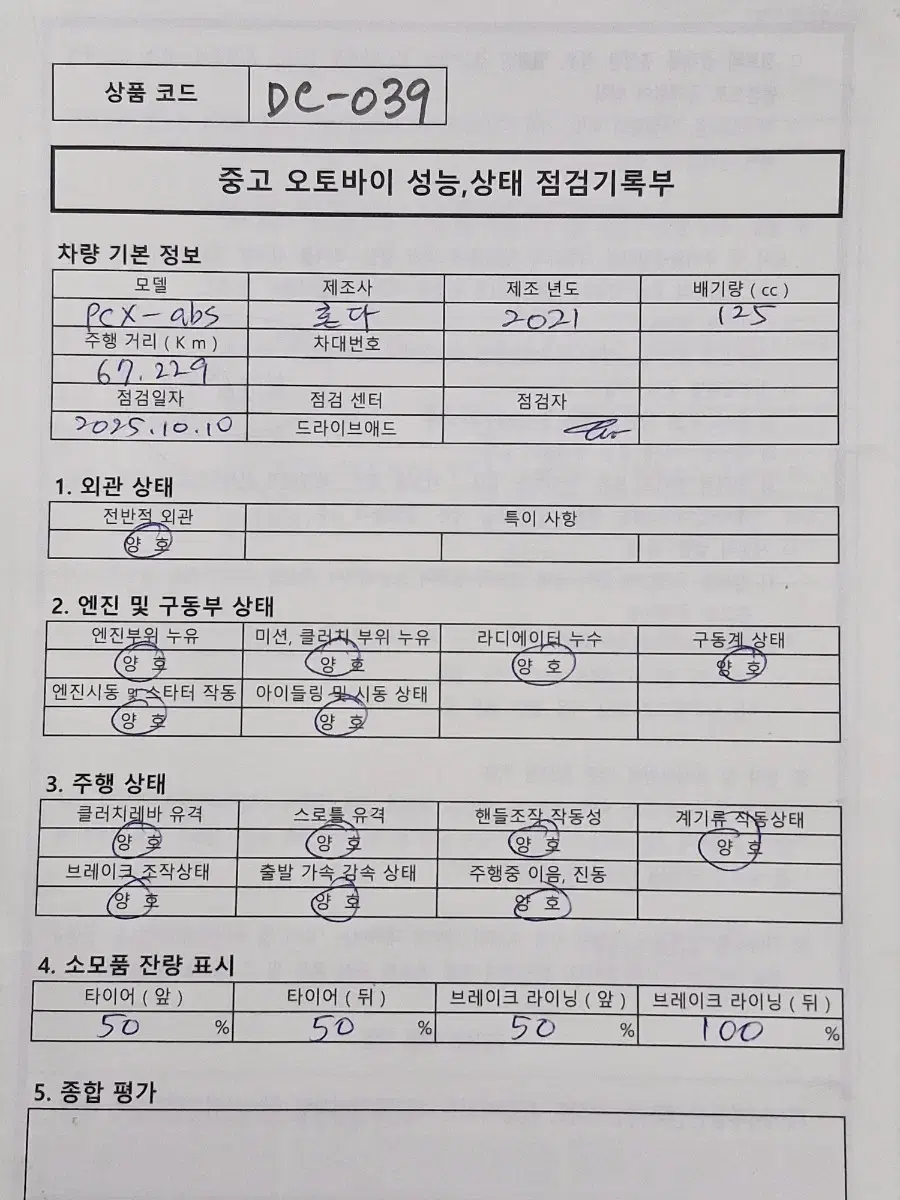 상품 코드 DC-039
중고 오토바이 성능,상태 점검기록부
차량 기본 정보
모델 제조사 제조 년도 배기량 ( cc )
PCX-abs 혼다 2021 125
주행 거리 ( K m ) 차대번호
67.229
점검일자 점검 센터 점검자
2025.10.10 드라이브애드
1. 외관 상태
전반적 외관 특이 사항
양 호
2. 엔진 및 구동부 상태
엔진부위 누유 미션, 클러치 부위 누유 라디에이터 누수 구동계 상태
양 호 양 호 양 호 양 호
엔진시동 및 스타터 작동 아이들링 및 시동 상태
양 호 양 호
3. 주행 상태
클러치레바 유격 스로틀 유격 핸들조작 작동성 계기류 작동상태
양 호 양 호 양 호 양 호
브레이크 조작상태 출발 가속 감속 상태 주행중 이음, 진동
양 호 양 호 양 호
4. 소모품 잔량 표시
타이어 ( 앞 ) 타이어 ( 뒤 ) 브레이크 라이닝 ( 앞 ) 브레이크 라이닝 ( 뒤 )
50 % 50 % 50 % 100 %
5. 종합 평가